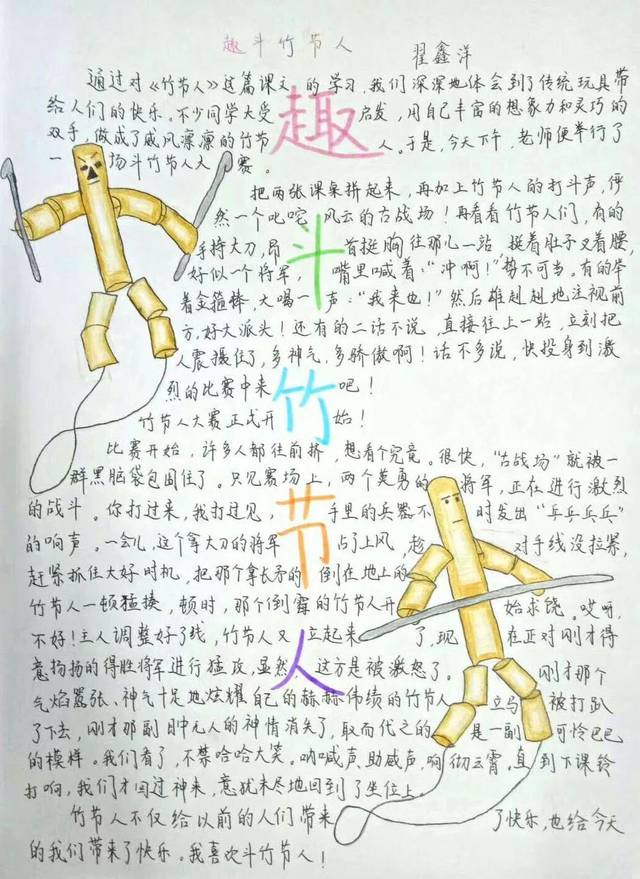 趣斗竹节人 翟鑫洋
通过对《竹节人》这篇课文的学习,我们深深地体会到了传统玩具带
给人们的快乐。不少同学大受启发,用自己丰富的想象力和灵巧的
双手,做成了威风凛凛的竹节人。于是,今天下午,老师便举行了
一场斗竹节人大赛。
把两张课桌拼起来,再加上竹节人的打斗声,俨
然一个叱咤风云的古战场!再看看竹节人们,有的
手持大刀,昂首挺胸往那儿一站,挺着肚子叉着腰,
好似一个将军,嘴里喊着:“冲啊!”势不可当。有的举
着金箍棒,大喝一声:“我来也!”然后雄赳赳地注视前
方,好大派头!还有的二话不说,直接往上一站,立刻把
人震慑住了,多神气,多骄傲啊!话不多说,快投身到激
烈的比赛中来吧!
竹节人大赛正式开始!
比赛开始,许多人都往前挤,想看个究竟。很快,“古战场”就被一
群黑脑袋包围住了。只见赛场上,两个英勇的将军,正在进行激烈
的战斗。你打过来,我打过见,手里的兵器不时发出“乒乒乓乓”
的响声。一会儿,这个拿大刀的将军占了上风,趁对手线没拉紧,
赶紧抓住大好时机,把那个拿长矛的倒在地上的
竹节人一顿猛揍,顿时,那个倒霉的竹节人开始求饶。哎呀,
不好!主人调整好了线,竹节人又立起来了,现在正对刚才得
意扬扬的得胜将军进行猛攻,显然,这方是被激怒了。刚才那个
气焰嚣张、神气十足地炫耀自己的赫赫伟绩的竹节人立马被打趴
了下去,刚才那副目中无人的神情消失了,取而代之的是一副可怜巴巴
的模样。我们看了,不禁哈哈大笑。呐喊声、助威声,响彻云霄。直到下课铃
打响,我们才回过神来,意犹未尽地回到了坐位上。
竹节人不仅给以前的人们带来了快乐,也给今天
的我们带来了快乐。我喜欢斗竹节人!
趣
斗
竹
节
人